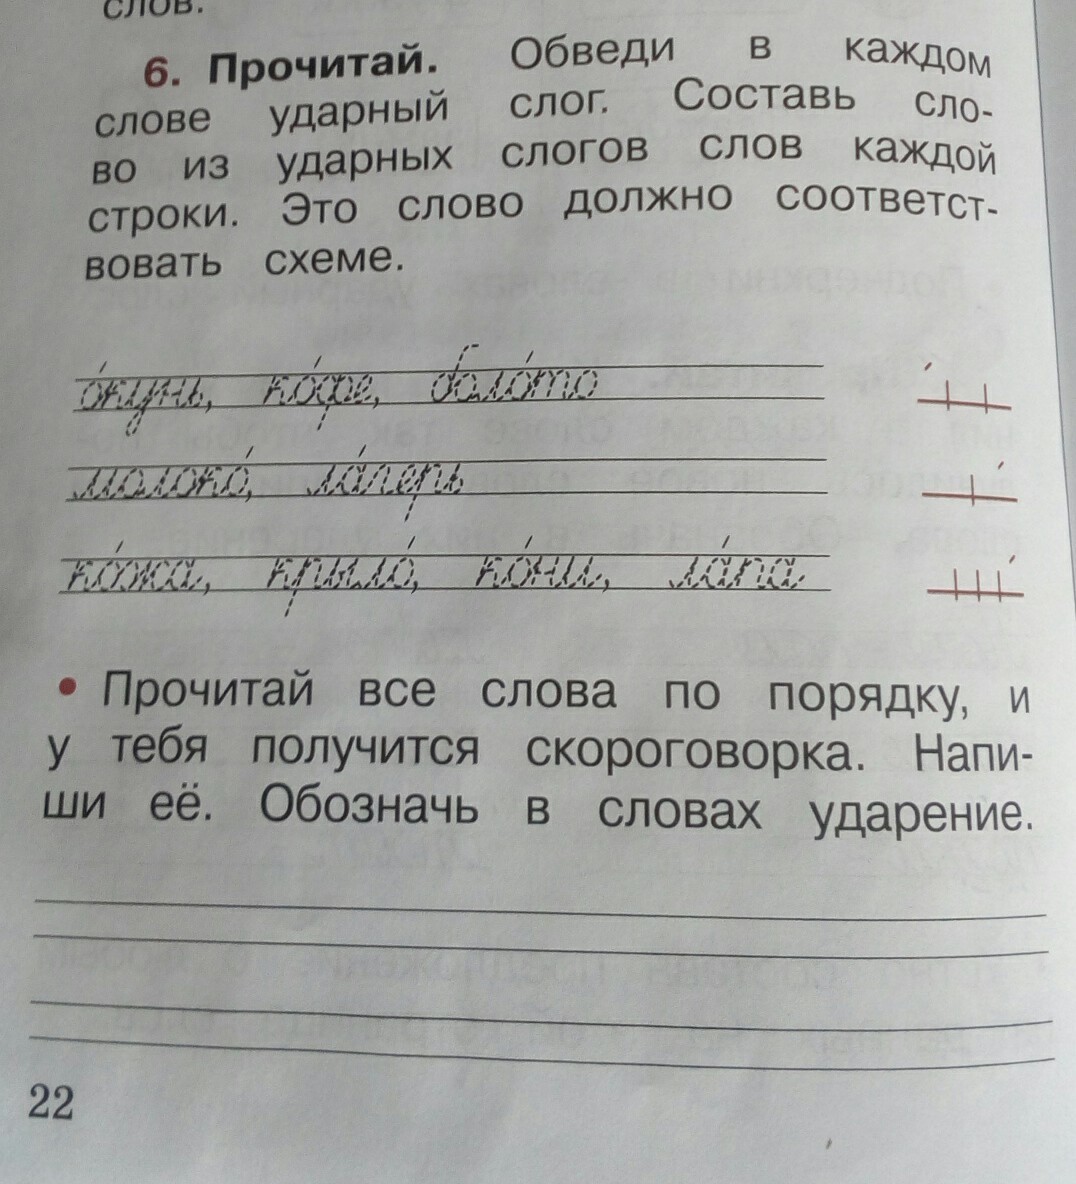 слов.
6. Прочитай. Обведи в каждом
слове ударный слог. Составь сло-
во из ударных слогов слов каждой
строки. Это слово должно соответст-
вовать схеме.
о́кунь, ко́фе, боло́то
молоко́, ла́герь
ко́жа, крыло́, ко́ни, ла́па
• Прочитай все слова по порядку, и
у тебя получится скороговорка. Напи-
ши её. Обозначь в словах ударение.
22